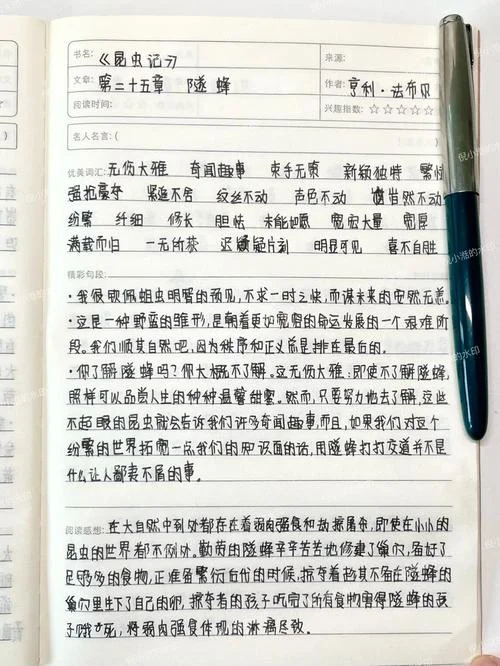 书名：《昆虫记》 来源：
文章：第二十五章 隧蜂 作者：亨利·法布尔
阅读时间： 兴趣指数：☆☆☆☆☆
名人名言：(
优美词汇：无伤大雅 奇闻趣事 束手无策 新颖独特 繁忙
强抢豪夺 紧追不舍 纹丝不动 声色不动 岿然不动
纷繁 纤细 修长 胆怯 未能如愿 宽宏大量 宽厚
满载而归 一无所获 迟疑片刻 明显可见 喜不自胜
精彩句段：
·我很钦佩蛆虫明智的预见，不求一时之快，而谋未来的安然无恙。
·这是一种野蛮的雏形，是朝着更加宽穷的命运发展的一个艰难阶
段。我们顺其自然吧，因为秩序和正义总是排在最后的。
·你了解隧蜂吗？你大概不了解。这无伤大雅：即使不了解隧蜂，
照样可以品尝人生的种种温馨甜蜜。然而，只要努力地去了解，这些
不起眼的昆虫就会告诉我们许多奇闻趣事，而且，如果我们对这个
纷繁的世界拓宽一点我们的知识面的话，用隧蜂打打交道并不是
什么让人鄙夷不屑的事。
阅读感想：在大自然中到处都存在着弱肉强食和劫掠屠夺，即使在小小的
昆虫的世界都不例外。勤劳的隧蜂辛辛苦苦地修建了巢穴，备好了
足够多的食物，正准备繁衍后代的时候，掠夺者趁其不备在隧蜂的
巢穴里生下了自己的卵，掠夺者的孩子吃完了所有食物害得隧蜂的孩
子饿死，将弱肉强食体现的淋漓尽致。